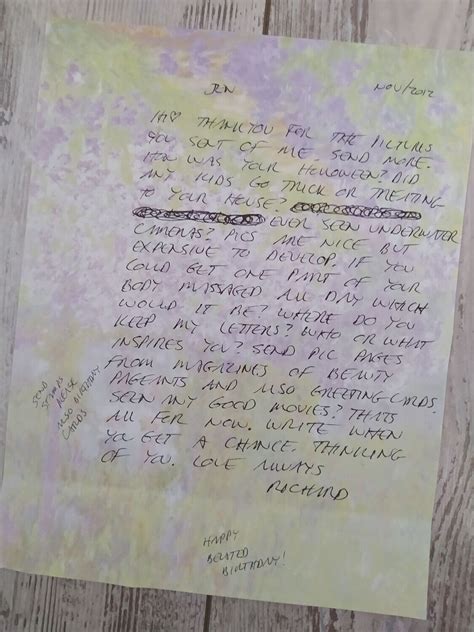 JEN
NOV/2012
HI♡ THANKYOU FOR THE PICTURES
YOU SENT OF ME. SEND MORE.
HOW WAS YOUR HELLOWEEN? DID
ANY KIDS GO TRICK OR TREATING
TO YOUR HOUSE?
EVER SEEN UNDERWATER
CAMERAS? PICS ARE NICE BUT
EXPENSIVE TO DEVELOP. IF YOU
COULD GET ONE PART OF YOUR
BODY MASSAGED ALL DAY WHICH
WOULD IT BE? WHERE DO YOU
KEEP MY LETTERS? WHO OR WHAT
INSPIRES YOU? SEND PIC PAGES
FROM MAGAZINES OF BEAUTY
PAGEANTS AND ALSO GREETING CARDS.
SEEN ANY GOOD MOVIES? THATS
ALL FOR NOW. WRITE WHEN
YOU GET A CHANCE. THINKING
OF YOU. LOVE ALWAYS
RICHARD
SEND
STAMPS
ALSO
CARDS
HAPPY
BELATED
BIRTHDAY!